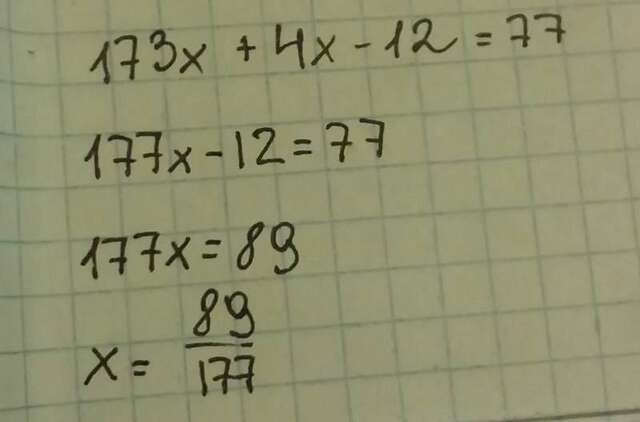 173x + 4x - 12 = 77
177x - 12 = 77
177x = 89
x = 89/177